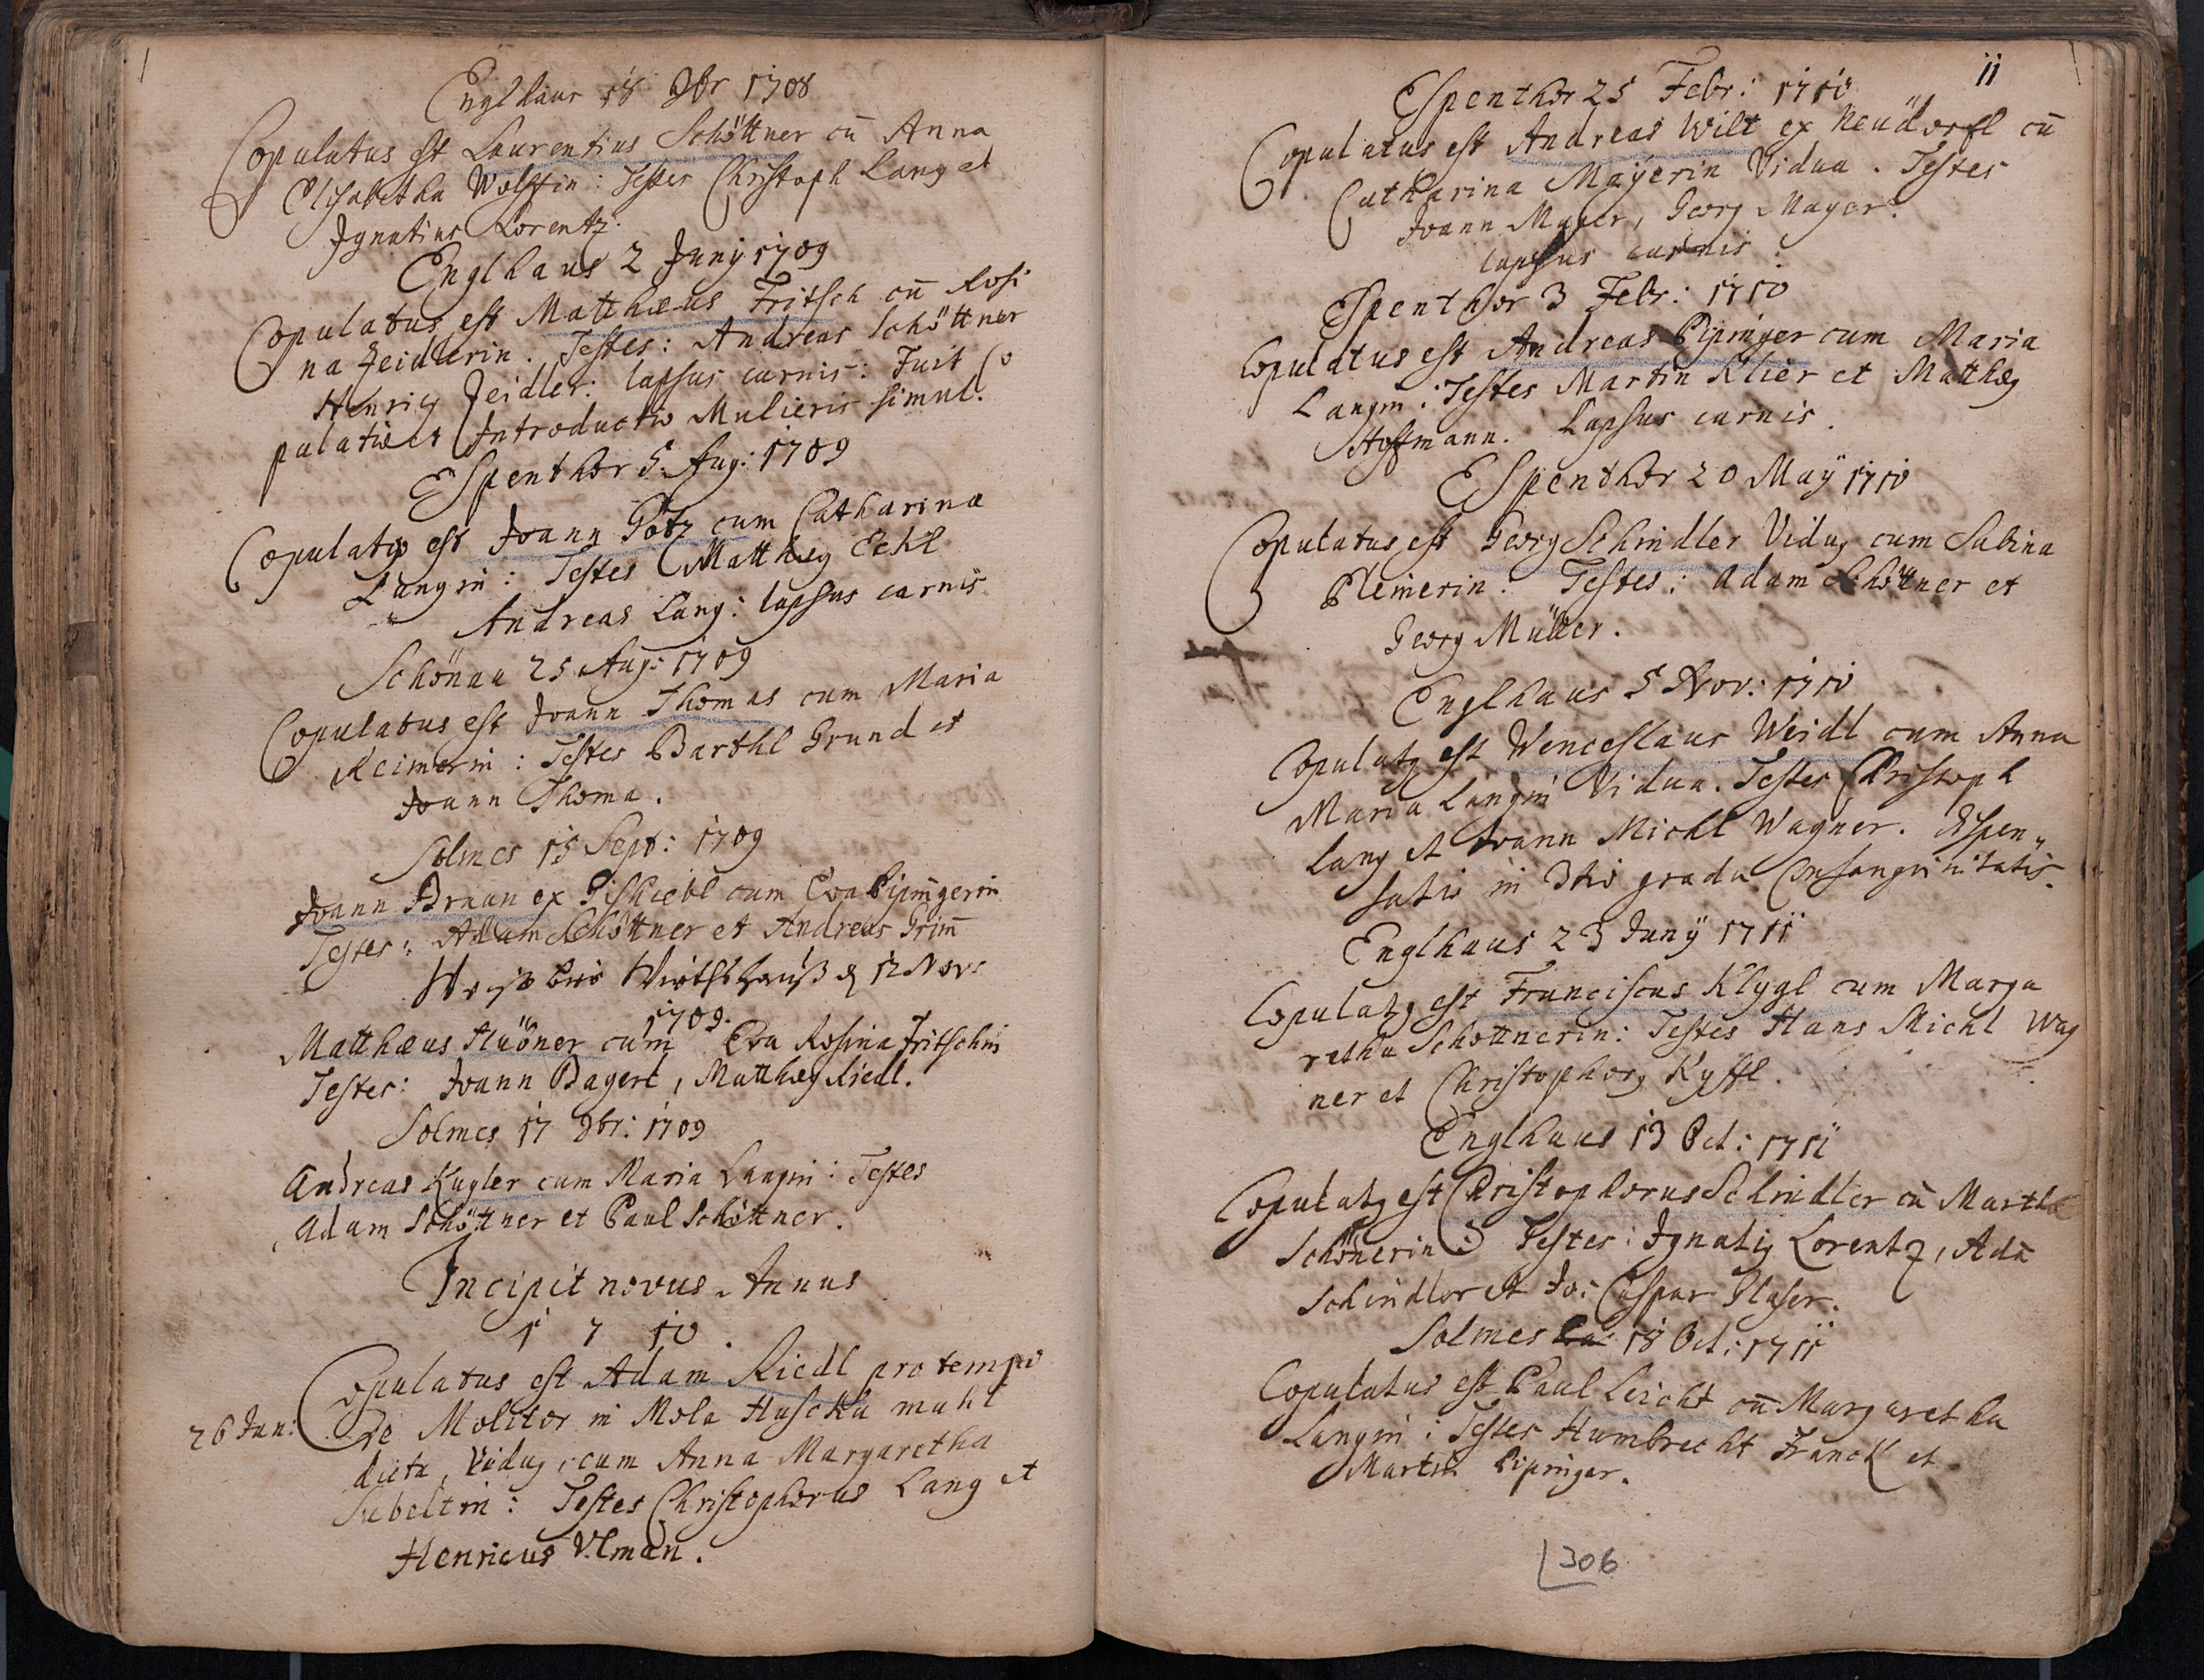 Englhaus 18 9br 1708
Copulatus est Laurentius Schöttner cū Anna
Elisabetha Wolffin: Testes Christoph Lang et
Ignatius Lorentz.
Englhaus 2 Junÿ 1709
Copulatus est Matthæus Fritsch cū Rosi
na Zeidlerin. Testes: Andreas Schöttner
Henricq Zeidler: lapsus carnis: Fuit Co
pulatio et Introductio Mulieris simul.
Espenthor 5. Aug: 1709
Copulatq est Joann Götz cum Catharina
Langin: Testes Matthæq Eckl
Andreas Lang: lapsus carnis
Schönau 25 Aug: 1709
Copulatus est Joann Thomas cum Maria
Reimerin: Testes Barthl Grund et
Joann Thoma.
Solmes 15 Sept: 1709
Joann Braun ex Gishiebl cum Eva Pipingerin
Testes: Adam Schöttner et Andreas Grim̄
Wirthshauß 12 Nov:
1709.
Matthæus Hübner cum Eva Rosina Fritschin
Testes: Joann Bagert, Matthæq Riedl.
Solmes 17 9br: 1709
Andreas Kugler cum Maria Langin: Testes
Adam Schöttner et Paul Schöttner.
Incipit novus Annus
1 7 10.
Copulatus est Adam Riedl pro tempo
26 Jan: re Molitor in Mola Huscka muhl
dicta, Viduq, cum Anna Margaretha
Sebeltin: Testes Christophorus Lang et
Henricus Ulman.
11
Espenthor 25 Febr: 1710
Copulatus est Andreas Wilt ex Neüdorfl cū
Catharina Maÿerin Vidua. Testes
Joann Mayer, Georg Mayer.
lapsus carnis:
Espenthor 3 Febr: 1710
Copulatus est Andreas Pipinger cum Maria
Langin: Testes Martin Klier et Matthæq
Hoffmann. Lapsus carnis.
Espenthor 20 Maÿ 1710
Copulatus est Georg Schindler Viduq cum Sabina
Pleinerin: Testes: Adam Schöttner et
Georg Müller.
Englhaus 5 Nov: 1710
Copulatq est Wenceslaus Weidl cum Anna
Maria Langin Vidua. Testes Christoph
Lang et Joann Michl Wagner. Dispen„
satis in 3tio gradu Consangvinitatis.
Englhaus 23 Junÿ 1711
Copulatq est Franciscus Klygl cum Marga
retha Schöttnerin: Testes Hans Michl Wag
ner et Christophorq Kyffl.
Englhaus 13 Oct: 1711
Copulatq est Christophorus Schindler cū Martha
Schönerin: Testes: Ignatiq Lorentz, Adā
Schindler et Jo: Caspar Glaser.
Solmes 18 Oct: 1711
Copulatus est Paul Leicht cū Margaretha
Langin: Testes Humbrecht Franck et
Martin Pipinger.
306